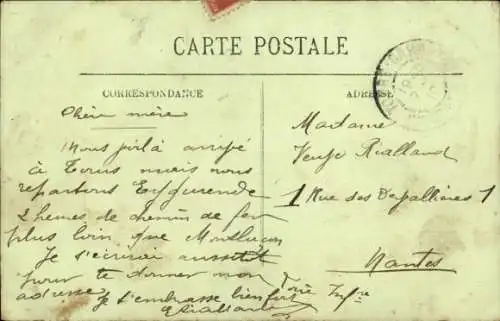 CARTE POSTALE
CORRESPONDANCE
ADRESSE
Chère mère
Nous voilà arrivé
à Tours mais nous
repartons
2 heures de chemin de fer
plus loin que Montluçon
Je t'écrirai aussitôt
pour te donner mon
adresse Je t'embrasse bien fort
Rialland
Madame
Veuve Rialland
1 Rue des 1
Nantes
Loire Infre